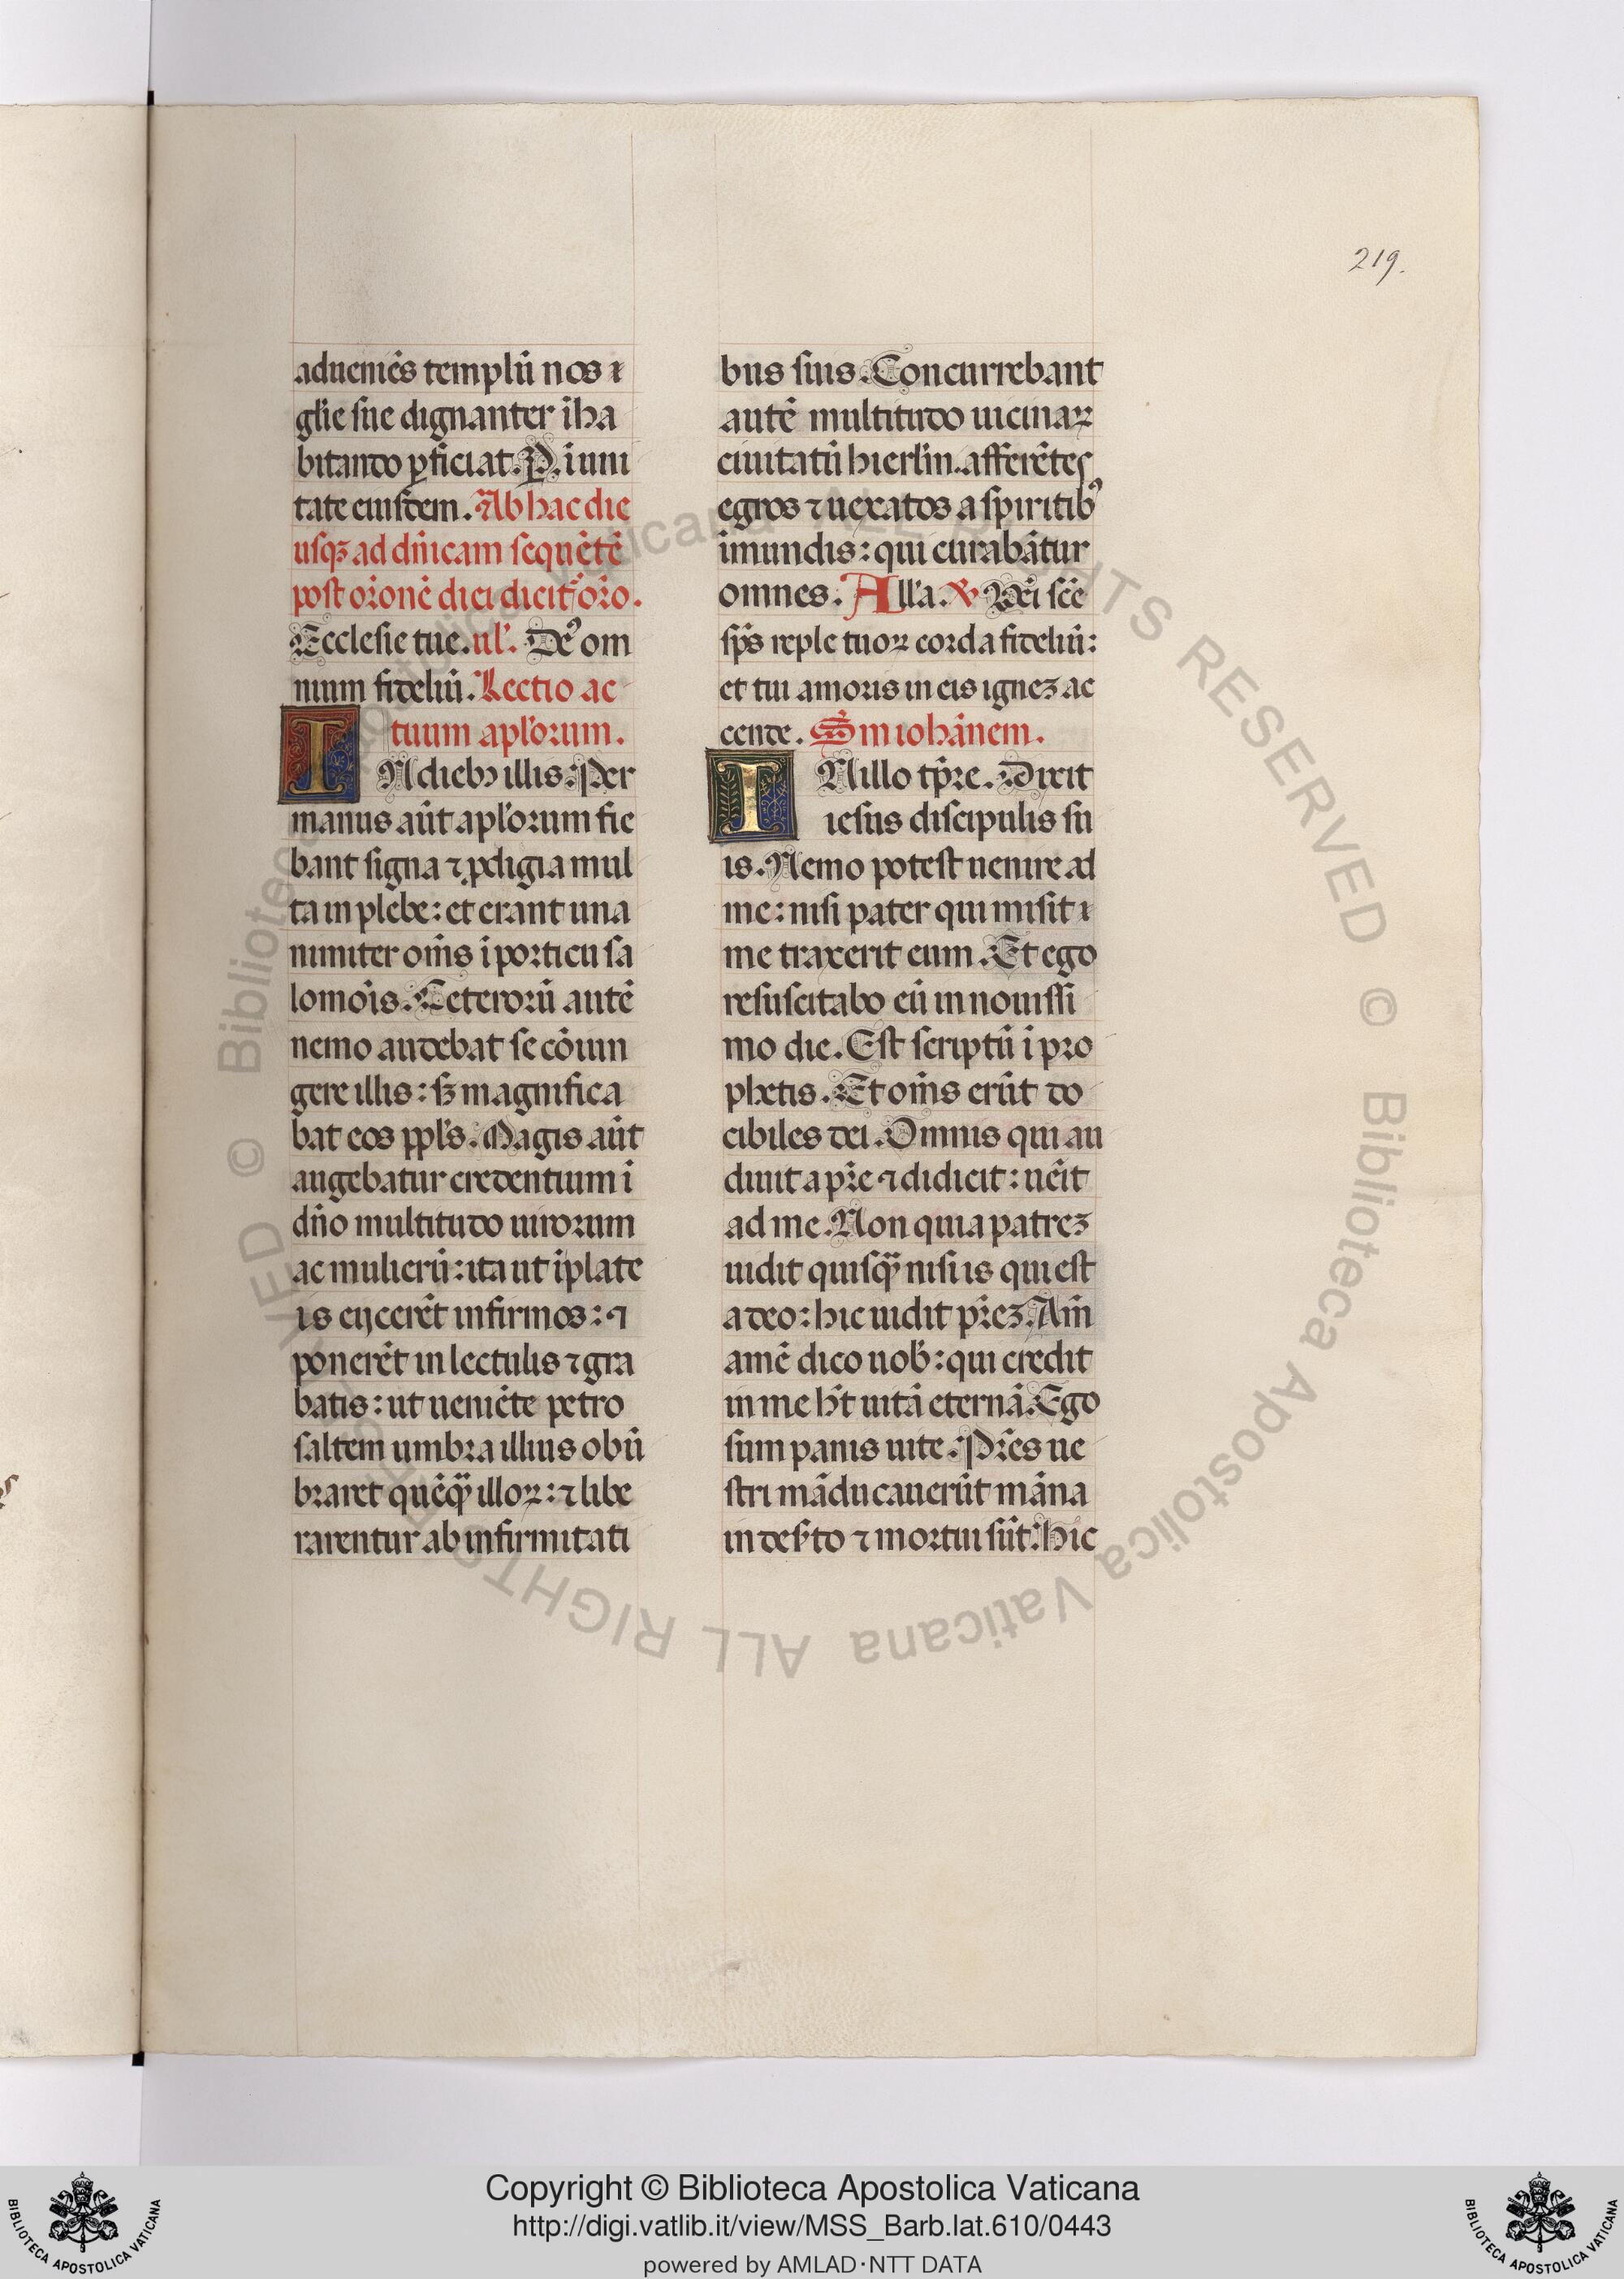 219.
adueniẽs templũ nos ı
gl'ie sue dignanter ĩha
bitando ꝑficiat. P. ĩ uni
tate eiusdem. Ab hac die
usqꝫ ad dñicam sequẽtẽ
post orõnẽ diei dicit᷑ orõ.
Ecclesie tue. ul'. Deꝰ om
nium fideliũ. Lectio ac
tuum apl'orum.
IN diebꝫ illis: Per
manus aũt apl'orum fie
bant signa ⁊ ꝓdigia mul
ta in plebe: et erant una
nimiter om̃s ĩ porticu sa
lomõis. Ceterorũ autẽ
nemo audebat se cõiun
gere illis: sꝫ magnifica
bat eos ppl's. Magis aũt
augebatur credentium ĩ
dño multitudo uirorum
ac mulierũ: ita ut ĩ plate
is eijcerẽt infirmos: ⁊
ponerẽt in lectulis ⁊ gra
batis: ut ueniẽte petro
saltem umbra illius obũ
braret quẽqꝫ illoꝝ: ⁊ libe
rarentur ab infirmitati
bus suis. Concurrebant
autẽ multitudo uicinaꝝ
ciuitatũ hierl'm. afferẽtes
egros ⁊ uexatos a spiritibꝰ
ĩmundis: qui curabãtur
omnes. All'a. ꝟ. Vẽi scẽ
sp̃s reple tuoꝝ corda fideliũ:
et tui amoris in eis igneꝫ ac
cende. Sm̃ iohãnem.
IN illo tp̃re. Dixit
iesus discipulis su
is. Nemo potest uenire ad
me: nisi pater qui misit ı
me traxerit eum. Et ego
resuscitabo eũ in nouissi
mo die. Est scriptũ ĩ pro
phetis. Et om̃s erũt do
cibiles dei. Omnis qui au
diuit a pr̃e ⁊ didicit: uẽit
ad me. Non quia patreꝫ
uidit quisqꝫ nisi is qui est
a deo: hic uidit pr̃eꝫ. Am̃
amẽ dico uob': qui credit
in me h̃t uitã eternã. Ego
sum panis uite. Pr̃es ue
stri mãducauerũt mãna
in des'to ⁊ mortui sũt: hic
© Biblioteca Apostolica Vaticana ALL RIGHTS RESERVED © Biblioteca Apostolica Vaticana ALL RIGHTS RESERVED
Copyright © Biblioteca Apostolica Vaticana
http://digi.vatlib.it/view/MSS_Barb.lat.610/0443
powered by AMLAD·NTT DATA
BIBLIOTECA APOSTOLICA VATICANA
BIBLIOTECA APOSTOLICA VATICANA